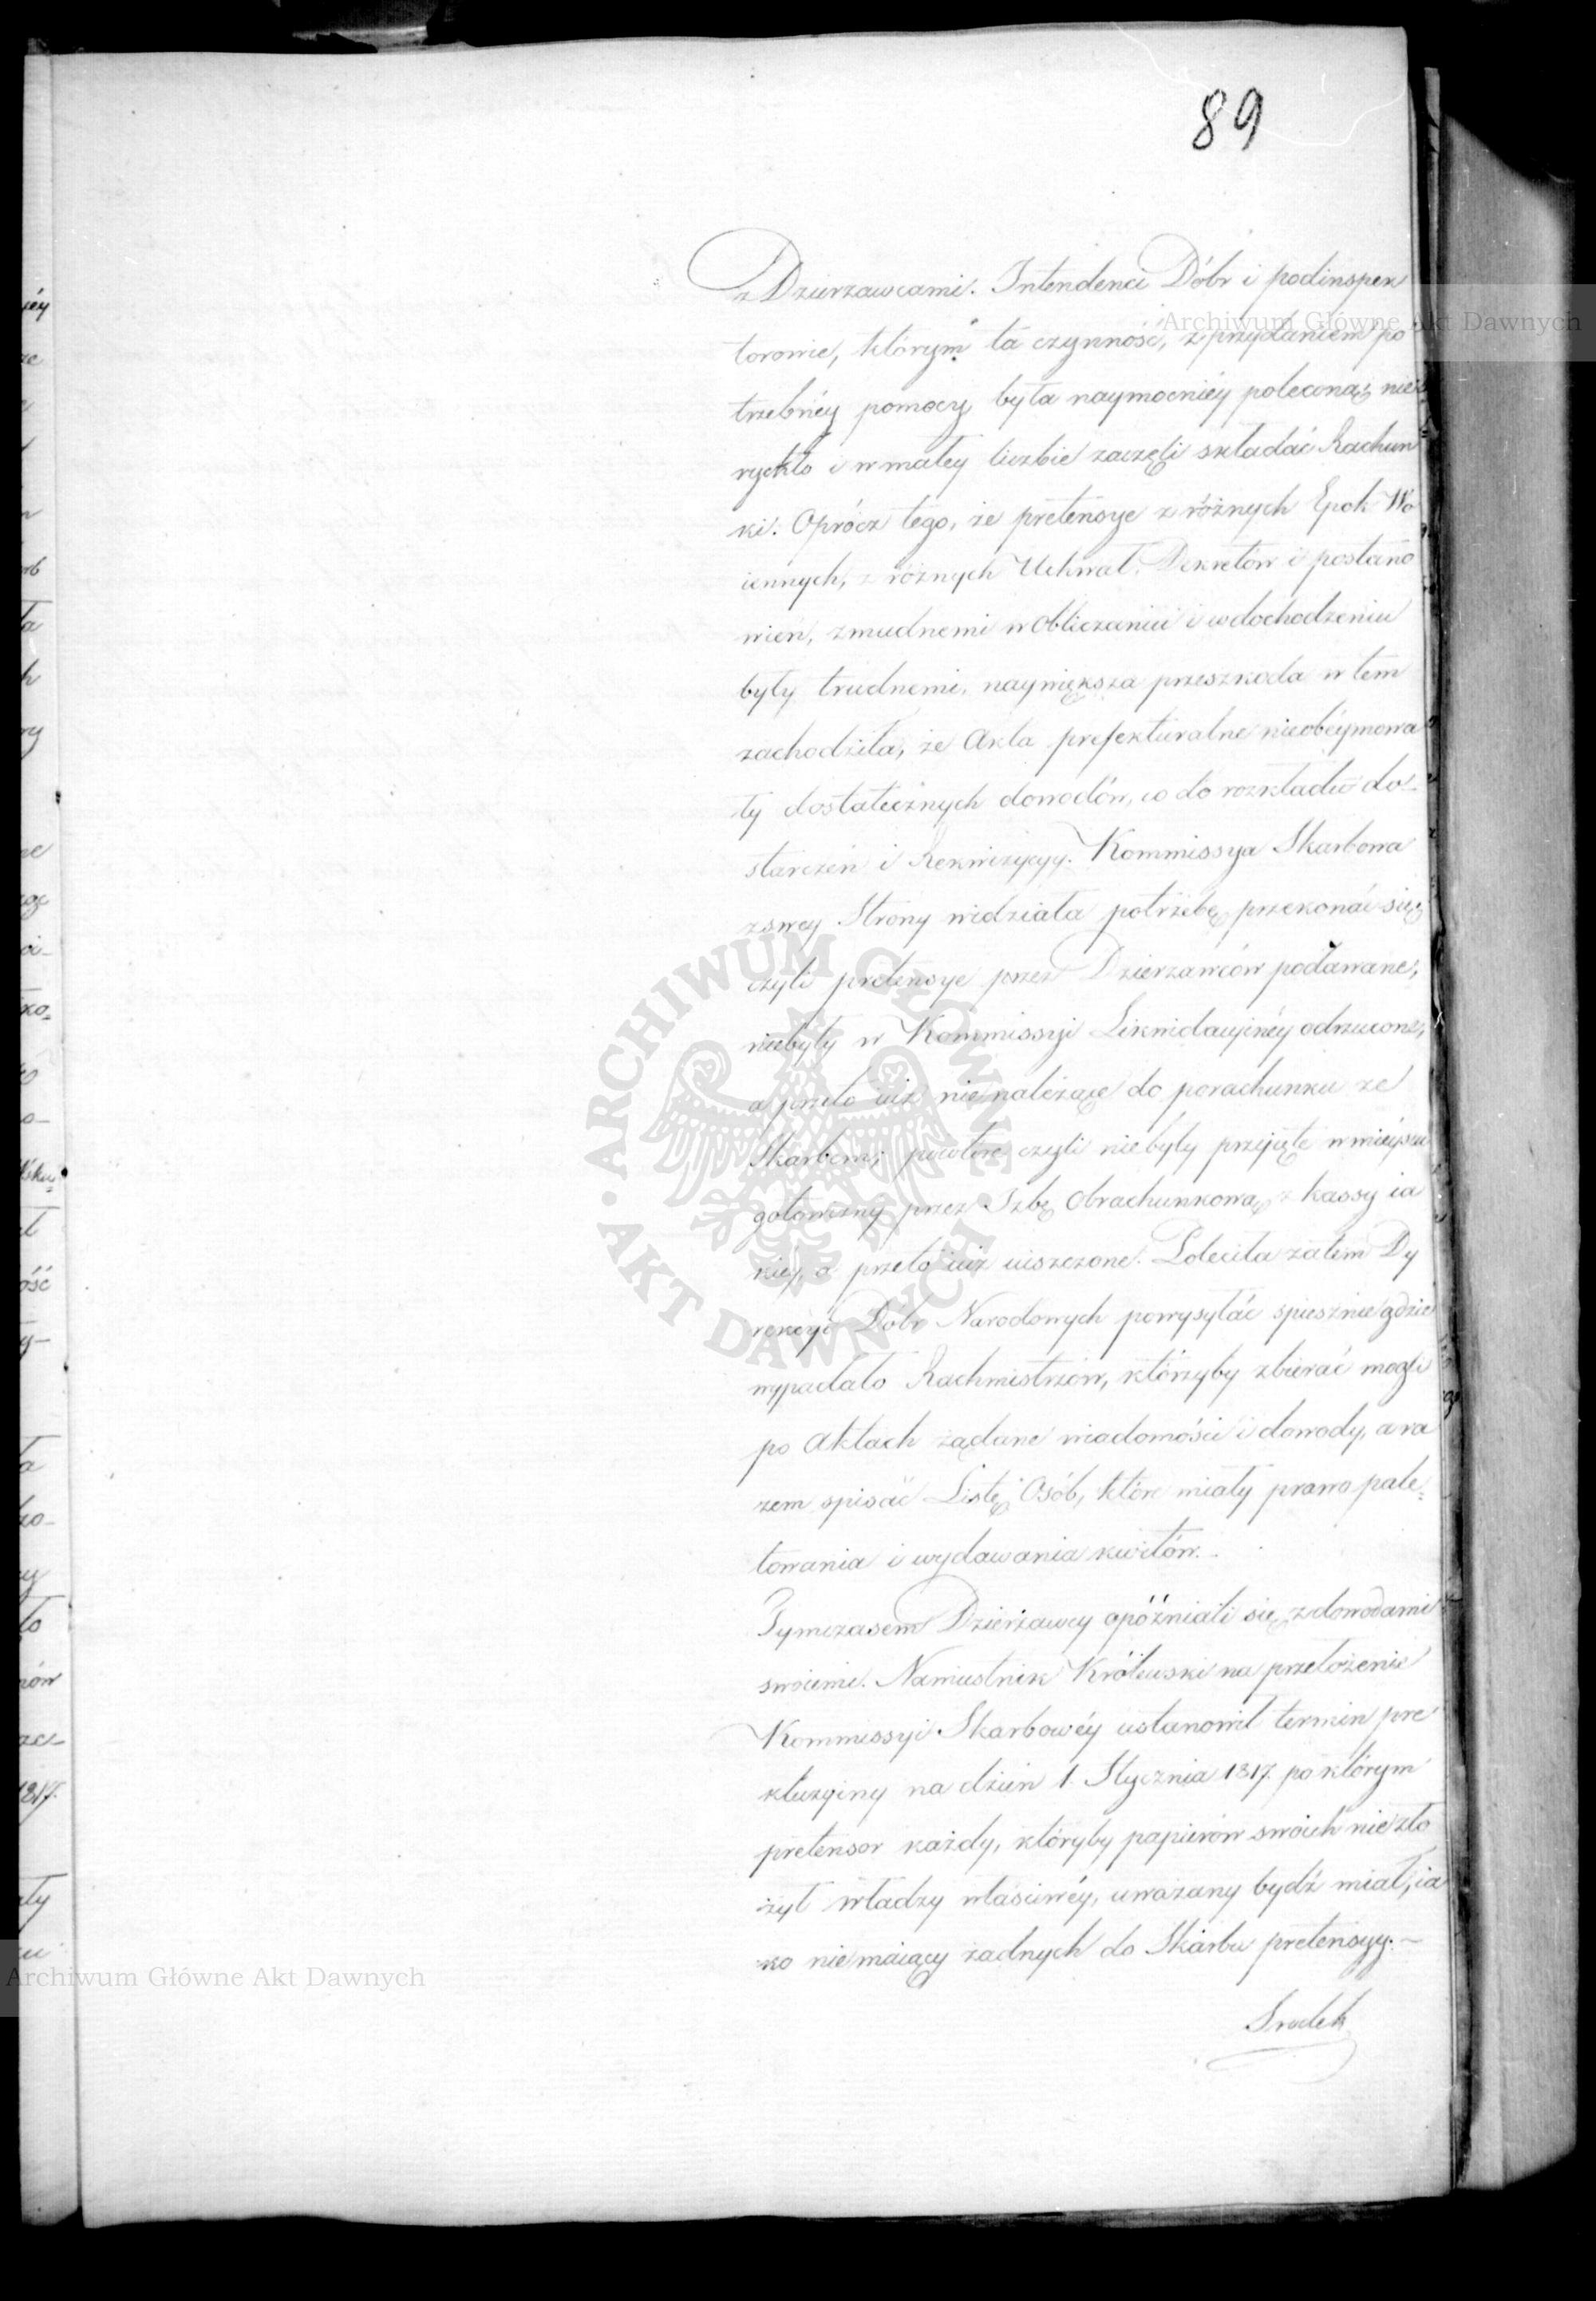 89
z Dzierzawcami. Intendenci Dóbr i podinspek
torowie, którym ta czynność, z przydaniem po
trzebnéy pomocy była naymocniéy polecona, nie
rychło i w małey liczbie zaczęli składać Rachun
ki. Oprócz tego, że pretensye z różnych Epok Wo
iennych, z różnych Uchwał, Dekretów i postano
wień, żmudnemi w obliczaniu i w dochodzeniu
były trudnemi, naywiększa przeszkoda w tem
zachodziła, że Akta prefekturalne nieobéymowa
ły dostatecznych dowodów, co do rozkładu do-
starczeń i Rekwizycyy. Kommissya Skarbowa
zswey Strony widziała potrzebę przekonać się
czyli pretensye przez Dzierzawców podawane,
niebyły w Kommissyi Likwidacyinéy odrzucone,
a przeto iuż nienależące do porachunku ze
Skarbem; powtóre czyli niebyły przyięte w mieyscu
gotowizny przez Izbę Obrachunkową z kassy ia
kiey, a przeto iuż uiszczone. Poleciła zatem Dy
rekcyi Dóbr Narodowych powysyłać spiesznie gdzie
wypadało Rachmistrzów, którzyby zbierać mogli
po Aktach żądane wiadomości i dowody, a ra
zem spisać Listę Osób, które miały prawo pale=
towania i wydawania kwitów.
Tymczasem Dzierżawcy opóźniali się z dowodami
swoiemi. Namiestnik Królewski na przełożenie
Kommissyi Skarbowéy ustanowił termin pre
kluzyiny na dzień 1. Stycznia 1817. po którym
pretensor każdy, któryby papierów swoich niezło
żył Władzy właściwéy, uważany bydź miał, ia
ko niemaiący żadnych do Skarbu pretensyy. –
Srodek
Archiwum Główne Akt Dawnych
ARCHIWUM GŁÓWNE · AKT DAWNYCH ·
Archiwum Główne Akt Dawnych